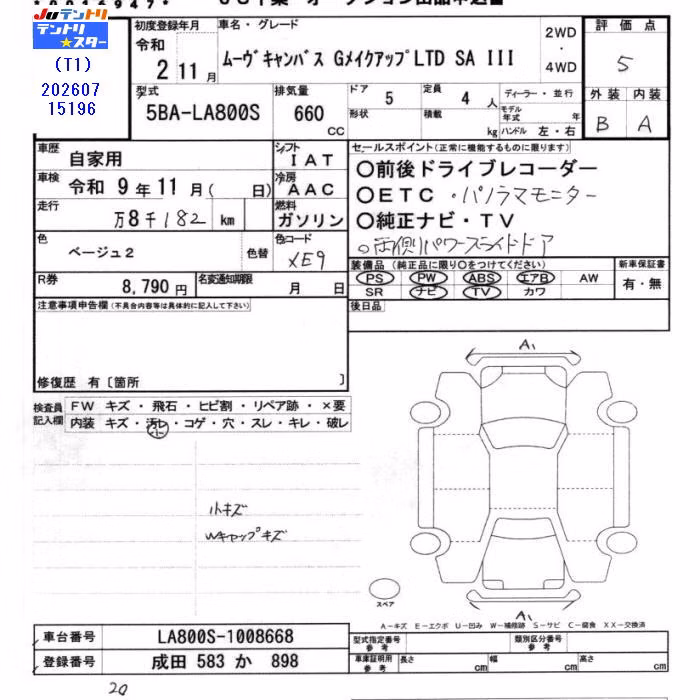 Juテントリ
テントリ★スター
(T1)
202607
15196
初度登録年月
令和
2 11 月
車名・グレード
ムーヴキャンバス GメイクアップLTD SA III
2WD
・
4WD
評価点
5
外装 内装
B A
型式
5BA-LA800S
排気量
660
CC
ドア
5
形状
定員
4 人
積載
kg
ディーラー・並行
モデル
年式 年
ハンドル 左・右
車歴
自家用
シフト
IAT
車検
令和 9 年 11 月( 日)
冷房
AAC
走行
万8千182 km
燃料
ガソリン
色
ベージュ2
色替
色コード
XE9
R券
8,790 円
名変通知期限
月 日
セールスポイント(正常に機能するものに限ります)
○前後ドライブレコーダー
○ETC ・パノラマモニター
○純正ナビ・TV
○両側パワースライドドア
装備品(純正品に限り○をつけてください)
PS PW ABS エアB AW
SR ナビ TV カワ
新車保証書
有・無
後日品
注意事項申告欄(不具合内容等は具体的に記入して下さい)
修復歴 有〔箇所 〕
検査員
記入欄
FW キズ・飛石・ヒビ割・リペア跡・×要
内装 キズ・汚レ・コゲ・穴・スレ・キレ・破レ
小キズ
Wキャップキズ
A1
スペア
A1
A-キズ E-エクボ U-凹み W-補修跡 S-サビ C-腐食 XX-交換済
車台番号
LA800S-1008668
登録番号
成田 583 か 898
型式指定番号
参考
類別区分番号
参考
車庫証明用
参考
長さ cm
幅 cm
高さ cm
20